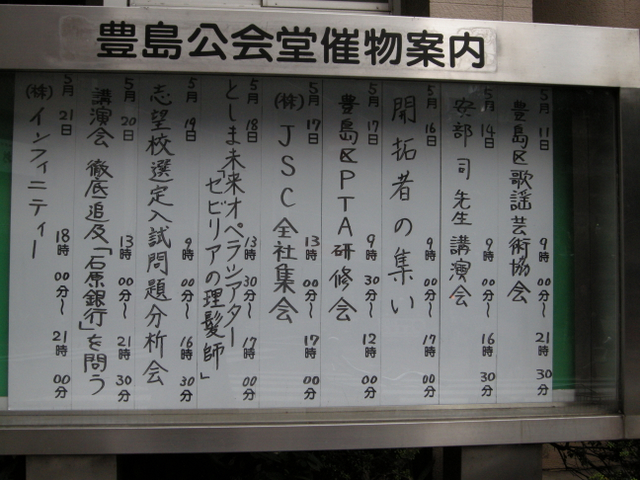 豊島公会堂催物案内
5月11日 9時00分～21時30分
豊島区歌謡芸術協会
5月14日 9時00分～16時30分
安部司先生講演会
5月16日 9時00分～17時00分
開拓者の集い
5月17日 9時30分～12時00分
豊島区PTA研修会
5月17日 13時00分～17時00分
(株)JSC全社集会
5月18日 13時30分～17時00分
としま未来オペラシアター
「セビリアの理髪師」
5月19日 9時00分～16時30分
志望校選定入試問題分析会
5月20日 13時00分～21時30分
講演会 徹底追及「石原銀行」を問う
5月21日 18時00分～21時00分
(株)インフィニティー